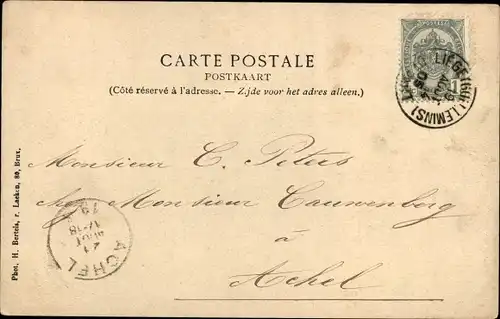 CARTE POSTALE
POSTKAART
(Côté réservé à l'adresse. — Zijde voor het adres alleen.)
LIEGE (GUILLEMINS)
Monsieur C. Peters
chez Monsieur Cauwenberg
à
Achel
ACHEL
Phot. H. Bertels, r. Laeken, 80, Brux.